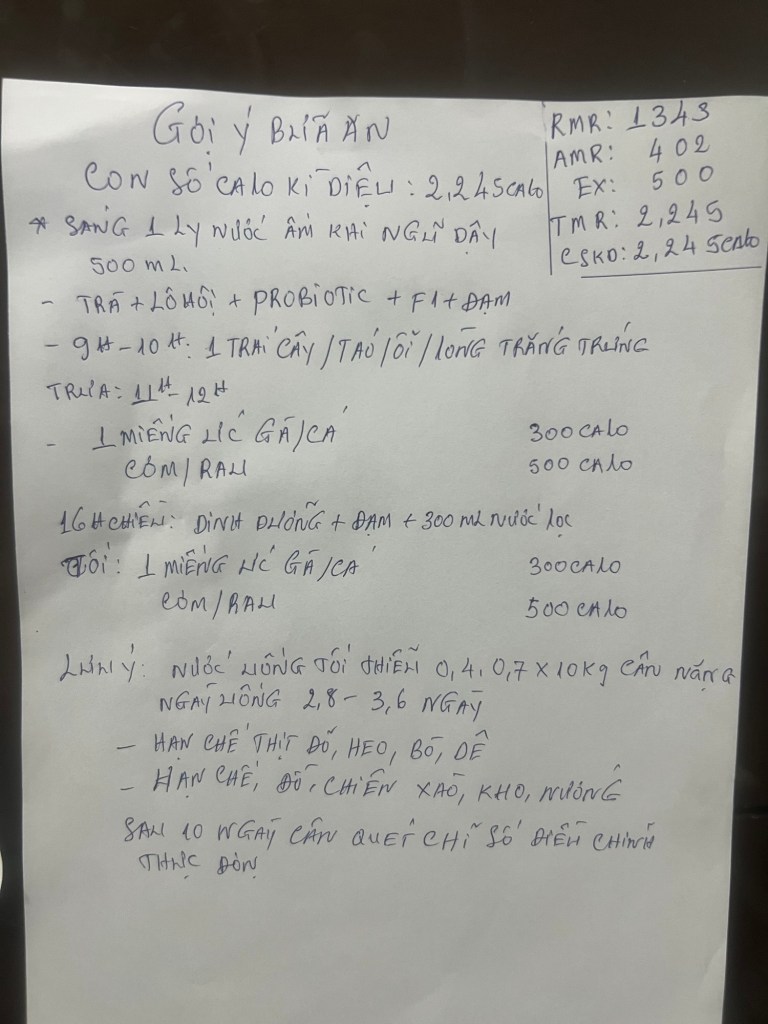 GỢI Ý BỮA ĂN
CON SỐ CALO KÌ DIỆU : 2,245CALO
RMR: 1343
AMR: 402
EX: 500
TMR: 2,245
CSKD: 2,245CALO
* SÁNG 1 LY NƯỚC ẤM KHI NGŨ DẬY
500 ML.
- TRÀ + LÔ HỘI + PROBIOTIC + F1 + ĐẠM
- 9H - 10H: 1 TRÁI CÂY / TÁO / ỔI / LÒNG TRẮNG TRỨNG
TRƯA: 11H - 12H
- 1 MIẾNG ỨC GÀ / CÁ 300 CALO
CƠM / RAU 500 CALO
16H CHIỀU: DINH DƯỠNG + ĐẠM + 300 ML NƯỚC LỌC
TỐI: 1 MIẾNG ỨC GÀ / CÁ 300 CALO
CƠM / RAU 500 CALO
LƯU Ý: NƯỚC UỐNG TỐI THIỂU 0,4. 0,7 X 10Kg CÂN NẶNG
NGÀY UỐNG 2,8 - 3,6 NGÀY
- HẠN CHẾ THỊT ĐỎ, HEO, BÒ, DÊ
- HẠN CHẾ, ĐỒ, CHIÊN XÀO, KHO, NƯỚNG
SAU 10 NGÀY CÂN QUÉT CHỈ SỐ ĐIỀU CHỈNH
THỰC ĐƠN